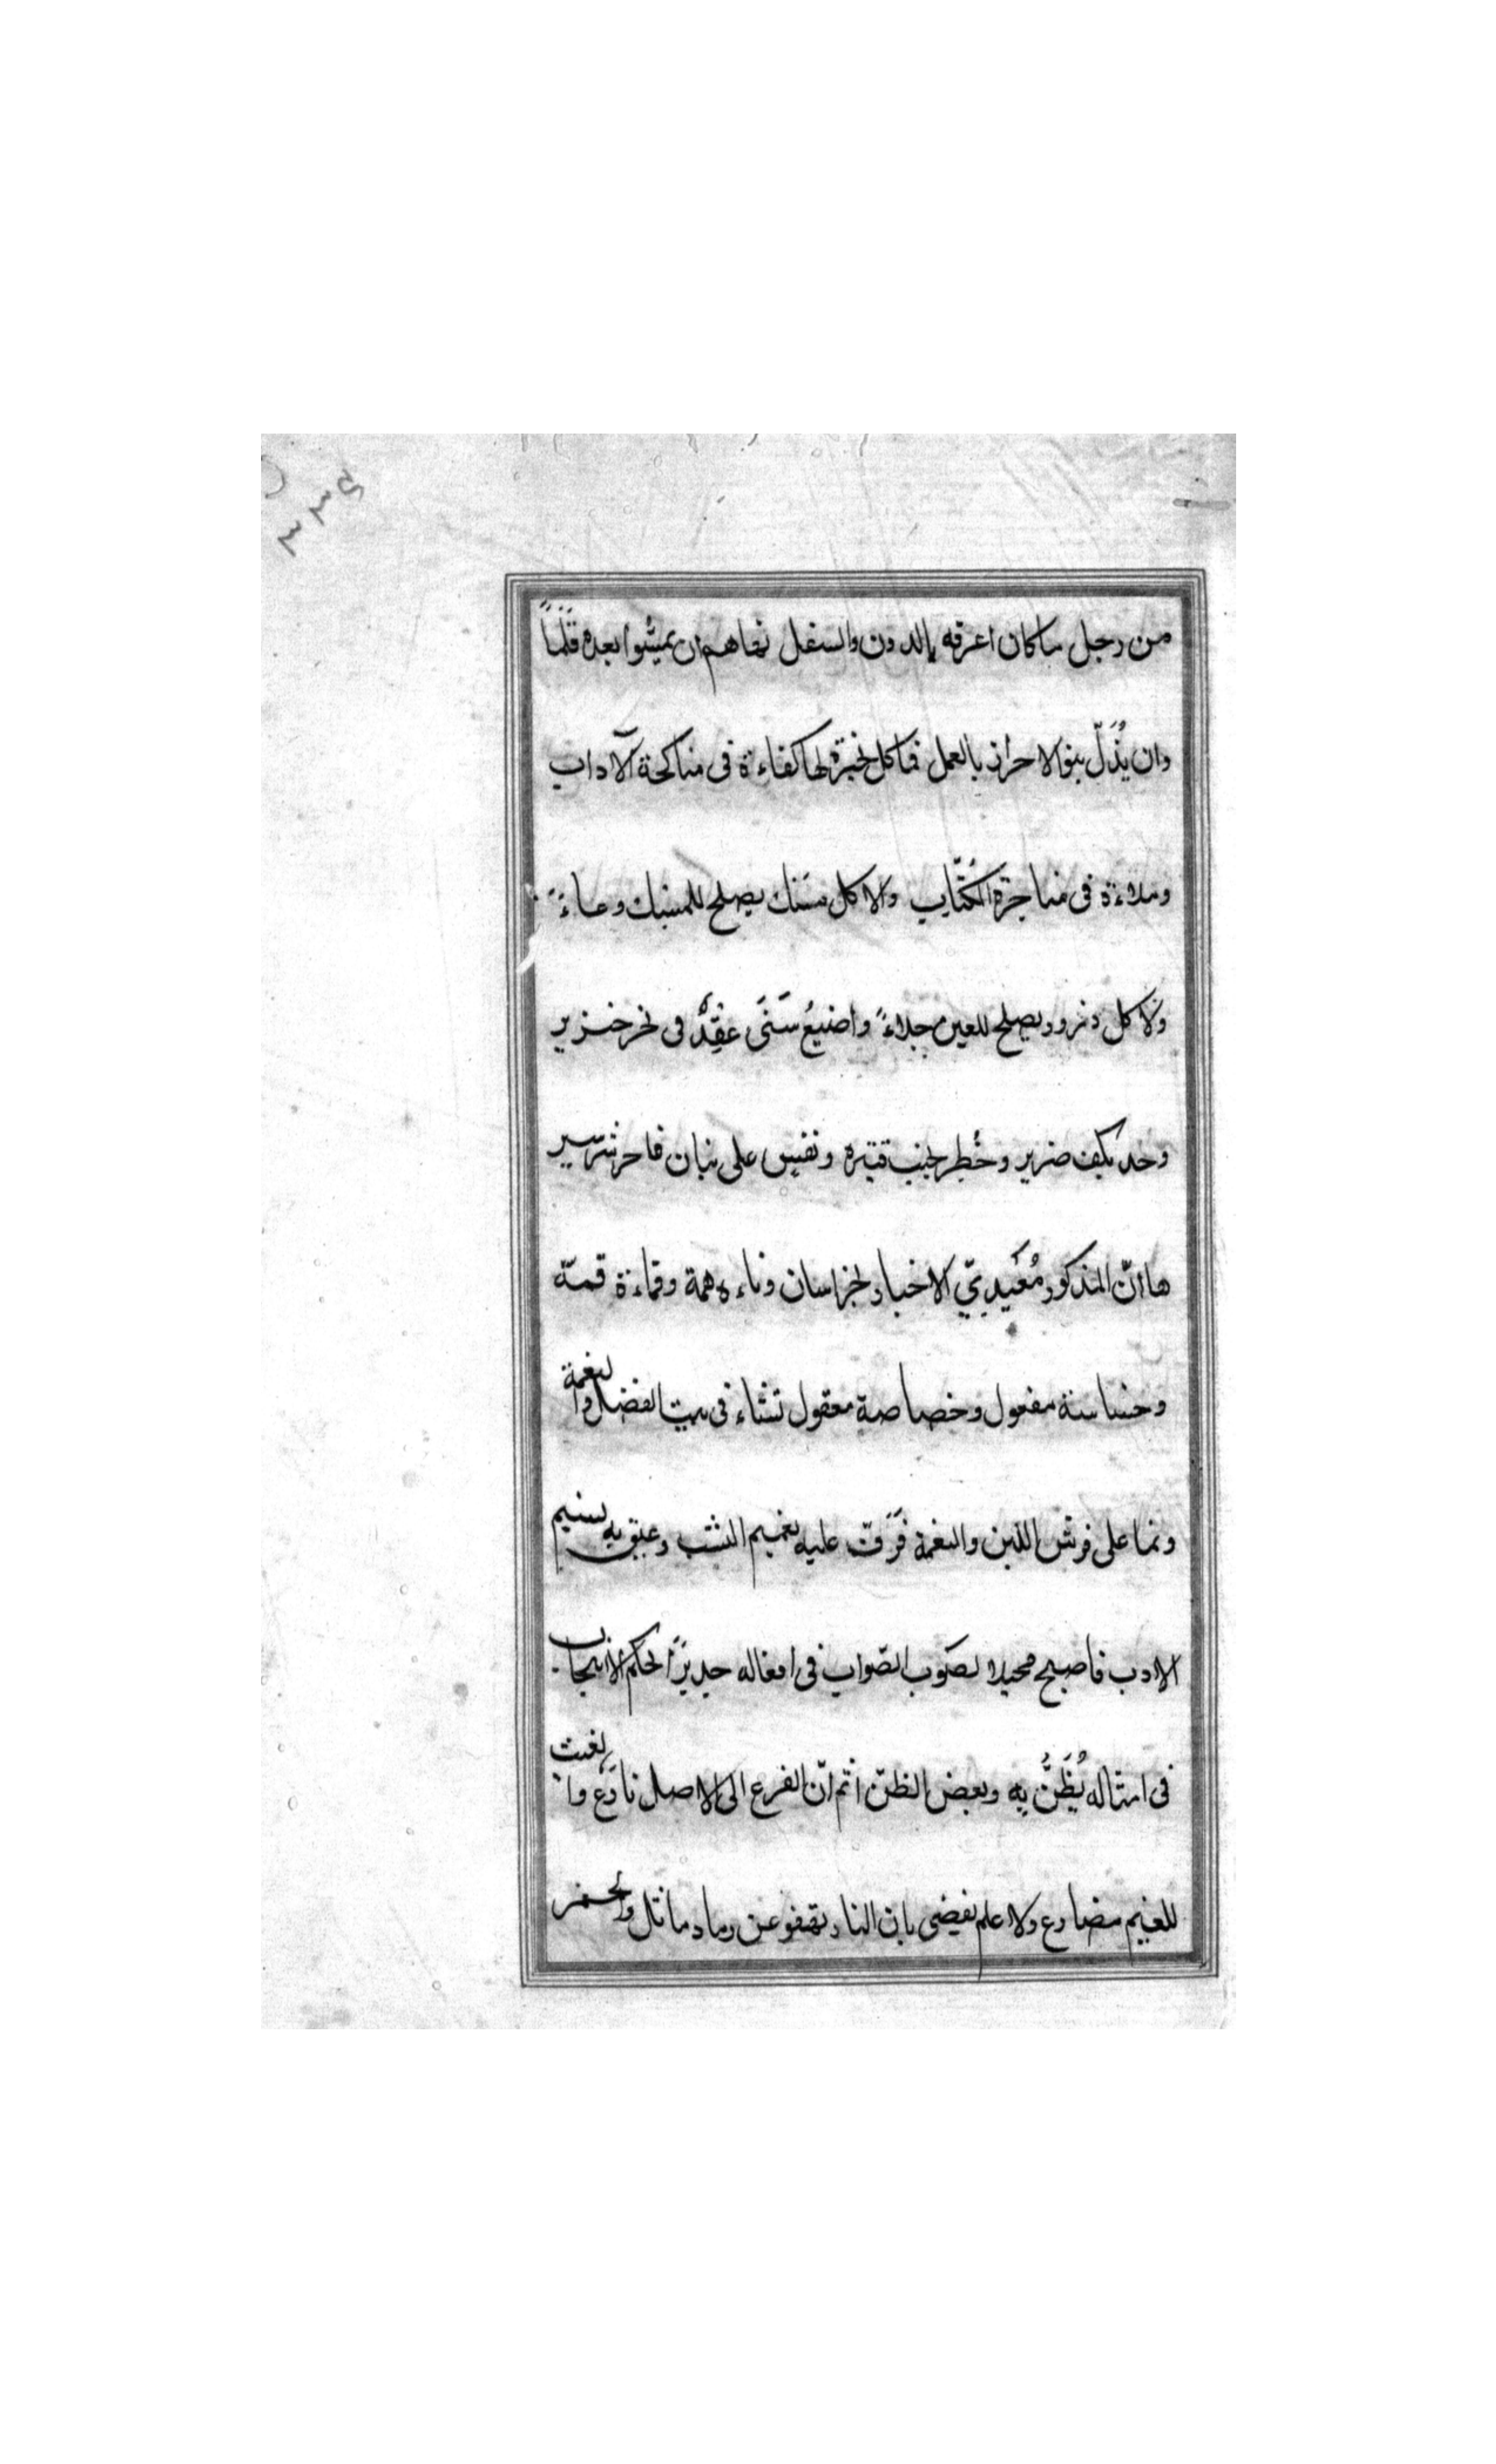 ٣٣٤
من رجل ما كان اعرفه بالدون والسفل نهاهم ان يمشوا بعده قدما
وان يُذَلّ بنو الاحرار بالعمل فما كل خبرة لها كفاءة في مناكحة الآداب
وملاءة في مناجزة الكُتّاب ولا كل مسك يصلح للمسك وعاءً
ولا كل ذرور يصلح للعين جلاءً واضيعُ شَىَ عقِدٌ في نحر خنزير
وحد بكف ضرير وخُطِر بجنب قتيره ونفيس على بنان فاجر شرير
ها انّ المذكور مُعَيديّ الاخبار بخراسان دناءه همة وقماءة قمة
وخساسة مفعول وخصاصة معقول تنشاء في بيت الفضل والنعمة
ونما على فرش اللين والنعمة فَرَقّت عليه نعيم النشب وعبق به نسيم
الادب فاصبح محيدا لصَوب الصّواب في افعاله جديرًا لحكم الانجاب
في امثاله يُظَنُّ به وبعض الظنّ اثم انّ الفرع الى الاصل نازع والغيث
للغيم مضارع ولا علم يفضي بان النار تقفو عن رماد ماثل والخمر